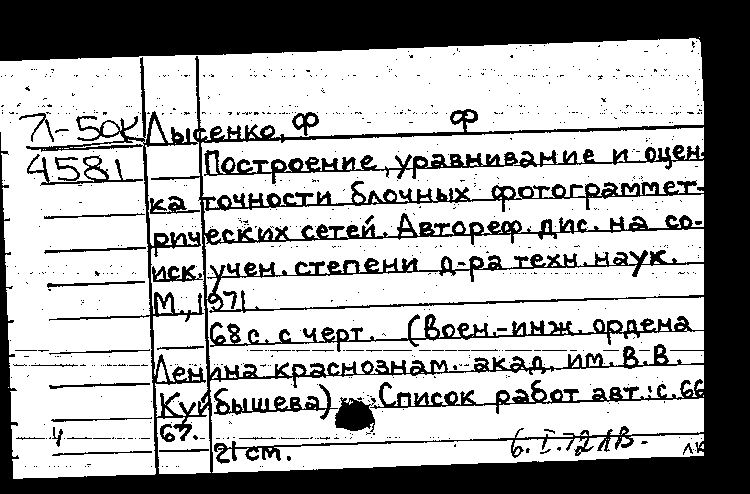 Л-50К Лысенко, Ф Ф
4581 Построение, уравнивание и оцен-
ка точности блочных фотограммет-
рических сетей. Автореф. дис. на со-
иск. учен. степени д-ра техн. наук.
М., 1971.
68 с. с черт. (Воен.-инж. ордена
Ленина краснознам. акад. им. В.В.
Куйбышева) Список работ авт.: с. 66
67.
21 см. 6.I.72 ЛВ.
лк